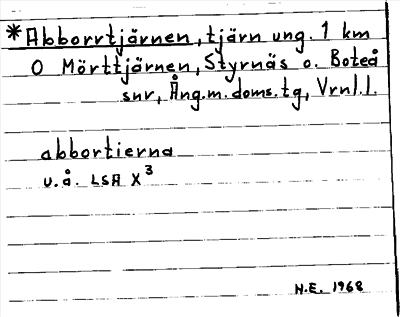 *Abborrtjärnen, tjärn ung. 1 km
O Mörttjärnen, Styrnäs o. Boteå
snr, Ång.m.doms.tg, Vrnl.l.
abbortierna
u.å. LSA X³
N.E. 1968